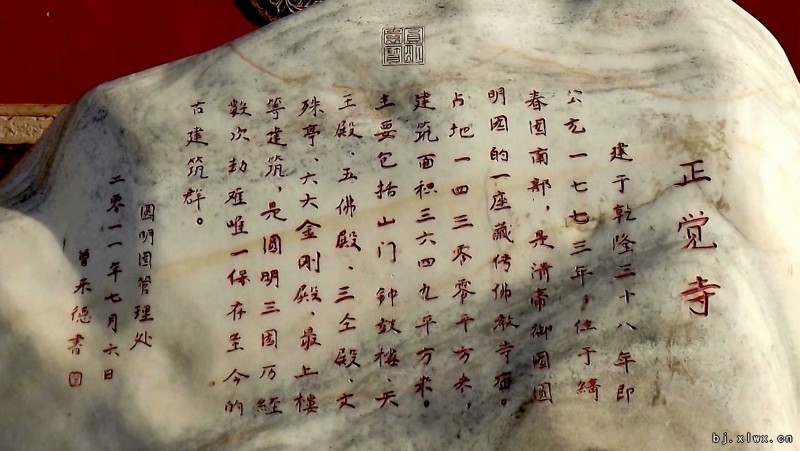 正觉寺
建于乾隆三十八年即
公元一七七三年，位于绮
春园南部，是清帝御园圆
明园的一座藏传佛教寺庙。
占地一四三零零平方米，
建筑面积三六四九平方米。
主要包括山门、钟鼓楼、天
王殿、五佛殿、三圣殿、文
殊亭、六大金刚殿、最上楼
等建筑，是圆明三园历经
数次劫难唯一保存至今的
古建筑群。
圆明园管理处
二零一一年七月六日
曾来德书
bj.xlwx.cn